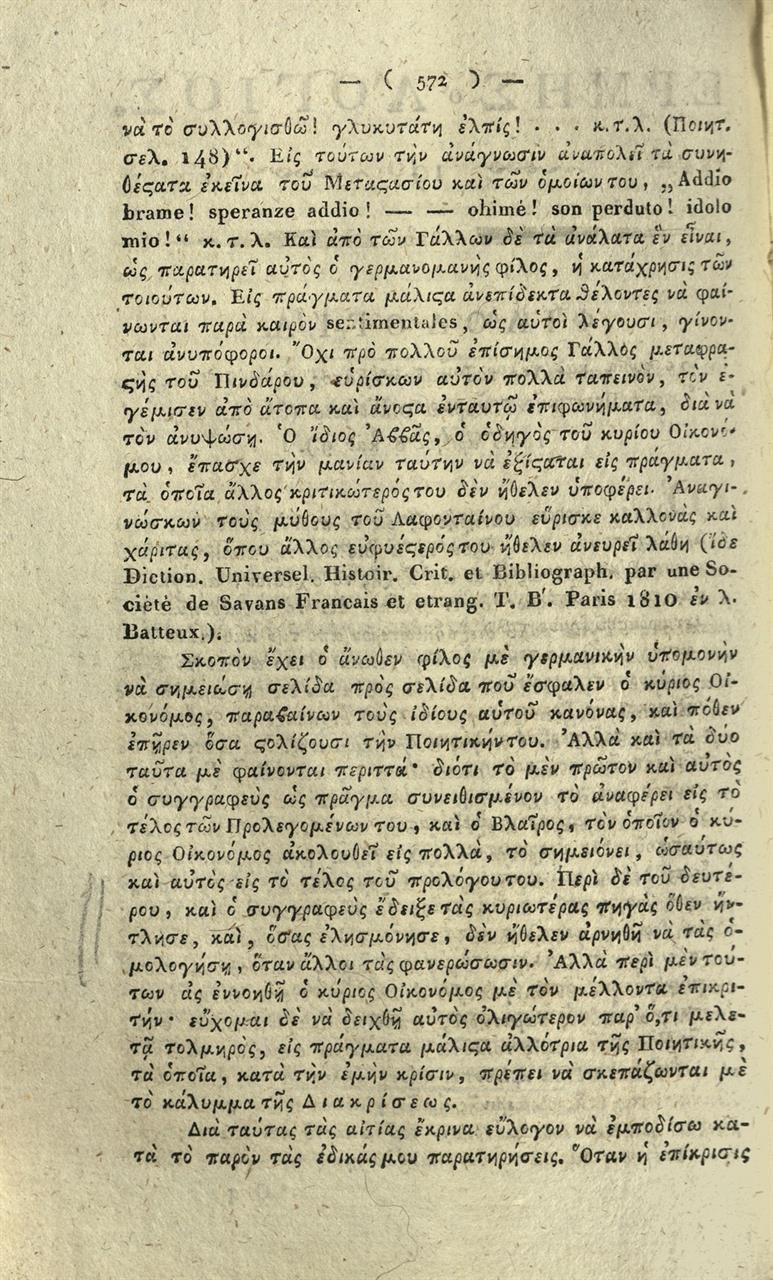 — ( 572 ) —
νὰ τὸ συλλογισθῶ! γλυκυτάτη ἐλπίς! . . . κ.τ.λ. (Ποιητ.
σελ. 148)“. Εἰς τούτων τὴν ἀνάγνωσιν ἀναπολεῖ τὰ συνη-
θέϛατα ἐκεῖνα τοῦ Μεταϛασίου καὶ τῶν ὁμοίων του, „Addio
brame! speranze addio! — — ohimé! son perduto! idolo
mio!“ κ. τ. λ. Καὶ ἀπὸ τῶν Γάλλων δὲ τὰ ἀνάλατα ἓν εἶναι,
ὡς παρατηρεῖ αὐτὸς ὁ γερμανομανὴς φίλος, ἡ κατάχρησις τῶν
τοιούτων. Εἰς πράγματα μάλιϛα ἀνεπίδεκτα θέλοντες νὰ φαί-
νωνται παρὰ καιρὸν sentimentales, ὡς αὐτοὶ λέγουσι, γίνον-
ται ἀνυπόφοροι. Ὄχι πρὸ πολλοῦ ἐπίσημος Γάλλος μεταφρα-
ϛὴς τοῦ Πινδάρου, εὑρίσκων αὐτὸν πολλὰ ταπεινὸν, τὸν ἐ-
γέμισεν ἀπὸ ἄτοπα καὶ ἄνοϛα ἐνταυτῷ ἐπιφωνήματα, διὰ νὰ
τὸν ἀνυψώσῃ. Ὁ ἴδιος Ἀϐϐᾶς, ὁ ὁδηγὸς τοῦ κυρίου Οἰκονό-
μου, ἔπασχε τὴν μανίαν ταύτην νὰ ἐξίϛαται εἰς πράγματα,
τὰ ὁποῖα ἄλλος κριτικώτερός του δὲν ἤθελεν ὑποφέρει. Ἀναγι-
νώσκων τοὺς μύθους τοῦ Λαφονταίνου εὕρισκε καλλονὰς καὶ
χάριτας, ὅπου ἄλλος εὐφυέϛερός του ἤθελεν ἀνευρεῖ λάθη (ἴδε
Diction. Universel. Histoir. Crit. et Bibliograph. par une So-
ciété de Savans Francais et etrang. T. Β΄. Paris 1810 ἐν λ.
Batteux.).
Σκοπὸν ἔχει ὁ ἄνωθεν φίλος μὲ γερμανικὴν ὑπομονὴν
νὰ σημειώσῃ σελίδα πρὸς σελίδα ποῦ ἔσφαλεν ὁ κύριος Οἰ-
κονόμος, παραϐαίνων τοὺς ἰδίους αὐτοῦ κανόνας, καὶ πόθεν
ἐπῆρεν ὅσα ϛολίζουσι τὴν Ποιητικήν του. Ἀλλὰ καὶ τὰ δύο
ταῦτα μὲ φαίνονται περιττά· διότι τὸ μὲν πρῶτον καὶ αὐτὸς
ὁ συγγραφεὺς ὡς πρᾶγμα συνειθισμένον τὸ ἀναφέρει εἰς τὸ
τέλος τῶν Προλεγομένων του, καὶ ὁ Βλαῖρος, τὸν ὁποῖον ὁ κύ-
ριος Οἰκονόμος ἀκολουθεῖ εἰς πολλὰ, τὸ σημειόνει, ὡσαύτως
καὶ αὐτὸς εἰς τὸ τέλος τοῦ προλόγου του. Περὶ δὲ τοῦ δευτέ-
ρου, καὶ ὁ συγγραφεὺς ἔδειξε τὰς κυριωτέρας πηγὰς ὅθεν ἤν-
τλησε, καὶ, ὅσας ἐλησμόνησε, δὲν ἤθελεν ἀρνηθῆ νὰ τὰς ὁ-
μολογήσῃ, ὅταν ἄλλοι τὰς φανερώσωσιν. Ἀλλὰ περὶ μὲν τού-
των ἂς ἐννοηθῇ ὁ κύριος Οἰκονόμος μὲ τὸν μέλλοντα ἐπικρι-
τήν· εὔχομαι δὲ νὰ δειχθῇ αὐτὸς ὀλιγώτερον παρ’ ὅ,τι μελε-
τᾷ τολμηρὸς, εἰς πράγματα μάλιϛα ἀλλότρια τῆς Ποιητικῆς,
τὰ ὁποῖα, κατὰ τὴν ἐμὴν κρίσιν, πρέπει νὰ σκεπάζωνται μὲ
τὸ κάλυμμα τῆς Διακρίσεως.
Διὰ ταύτας τὰς αἰτίας ἔκρινα εὔλογον νὰ ἐμποδίσω κα-
τὰ τὸ παρὸν τὰς ἐδικάς μου παρατηρήσεις. Ὅταν ἡ ἐπίκρισις